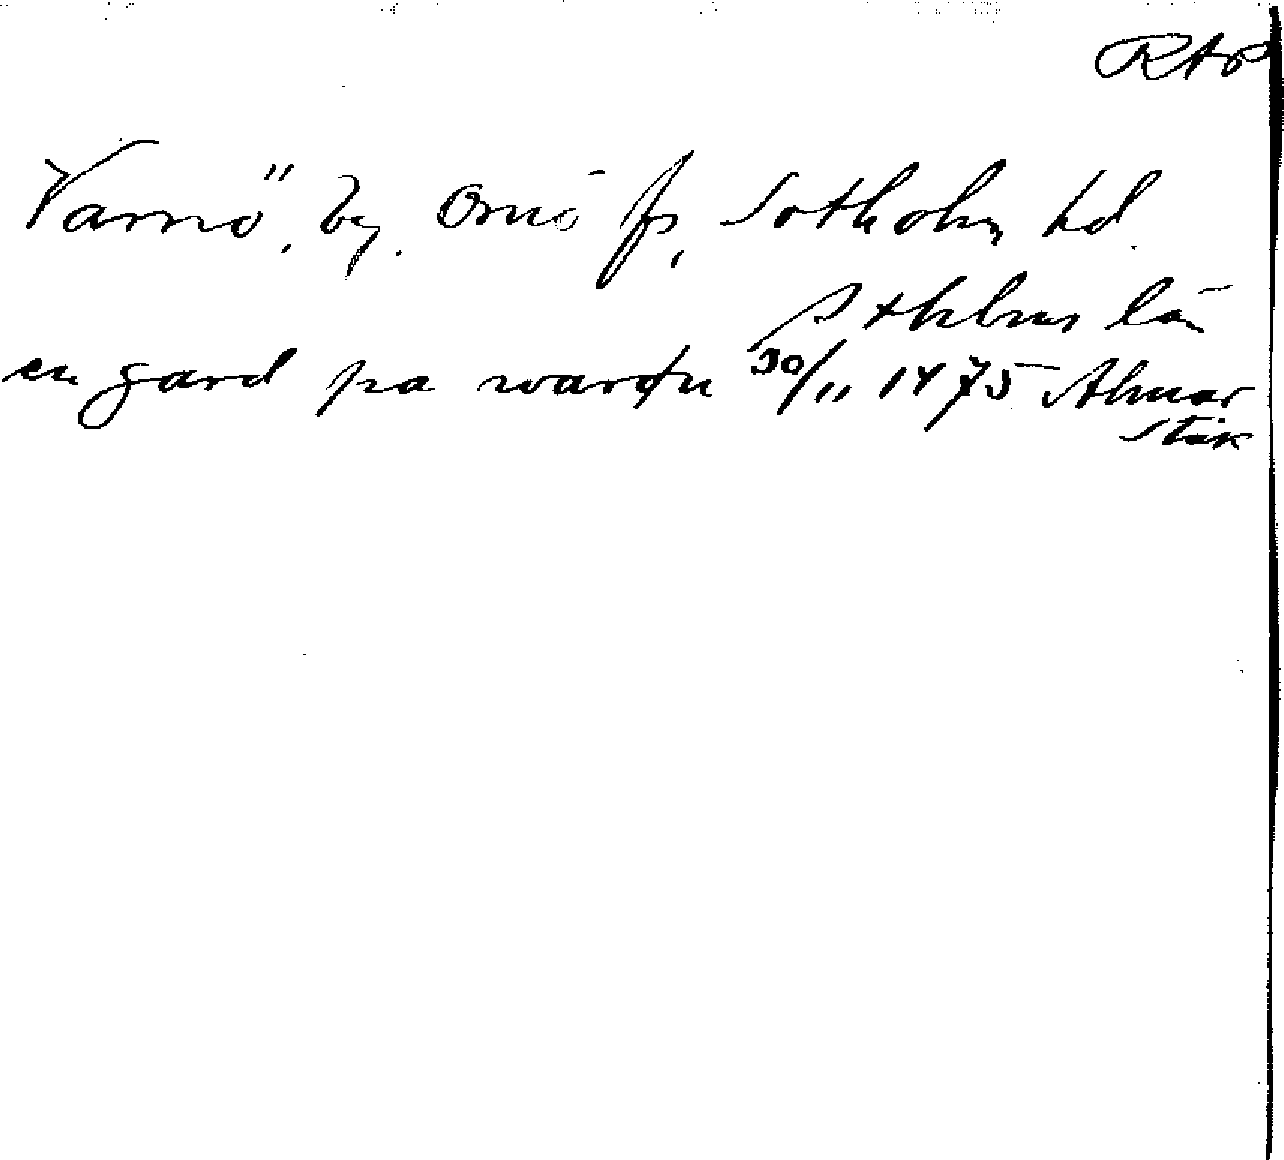 RAP
Varnö, by. Ornö sn, Sotholms hd.
Sthlms län
en gard pa wardn 30/11 1475 Almar
Stäk